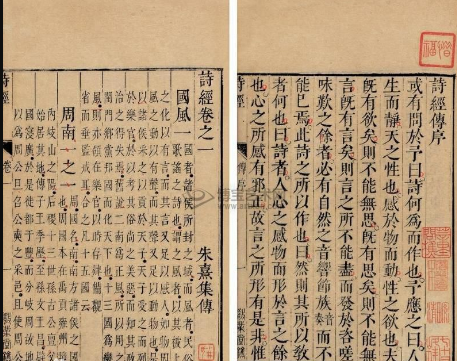 詩經傳序
或有問於予曰詩何爲而作也予應之曰人
生而靜天之性也感於物而動性之欲也夫
既有欲矣則不能無思既有思矣則不能無
言既有言矣則言之所不能盡而發於咨嗟
咏歎之餘者必有自然之音響節族音奏而不
能已焉此詩之所以作也曰然則其所以教
者何也曰詩者人心之感物而形於言之餘
也心之所感有邪正故言之所形有是非惟
詩經卷之一
朱熹集傳
國風一
國者諸侯所封之域而風者民俗
歌謠之詩也謂之風者以其被上
之化以有言而其言又足以感人如物因
風之動以有聲而其聲又足以動物也是
以諸侯采之以貢於天子天子受之而列
於樂官於以考其俗尚之美惡而知其政
治之得失焉舊說二南爲正風所以用之
閨門鄉黨邦國而化天下也十三國爲變
風則亦領在樂官以時存肄備觀
省而垂監戒耳合之凡十五國云
周南一之一
周國名南南方諸侯之國
也周國本在禹貢雍州境
內岐山之陽后稷十三世孫古公亶父
始居其地傳子王季歷至孫文王昌辟
國寖廣於是徙都于豐而分岐周故地
以爲周公旦召公奭之采邑且使周公
詩經
卷一